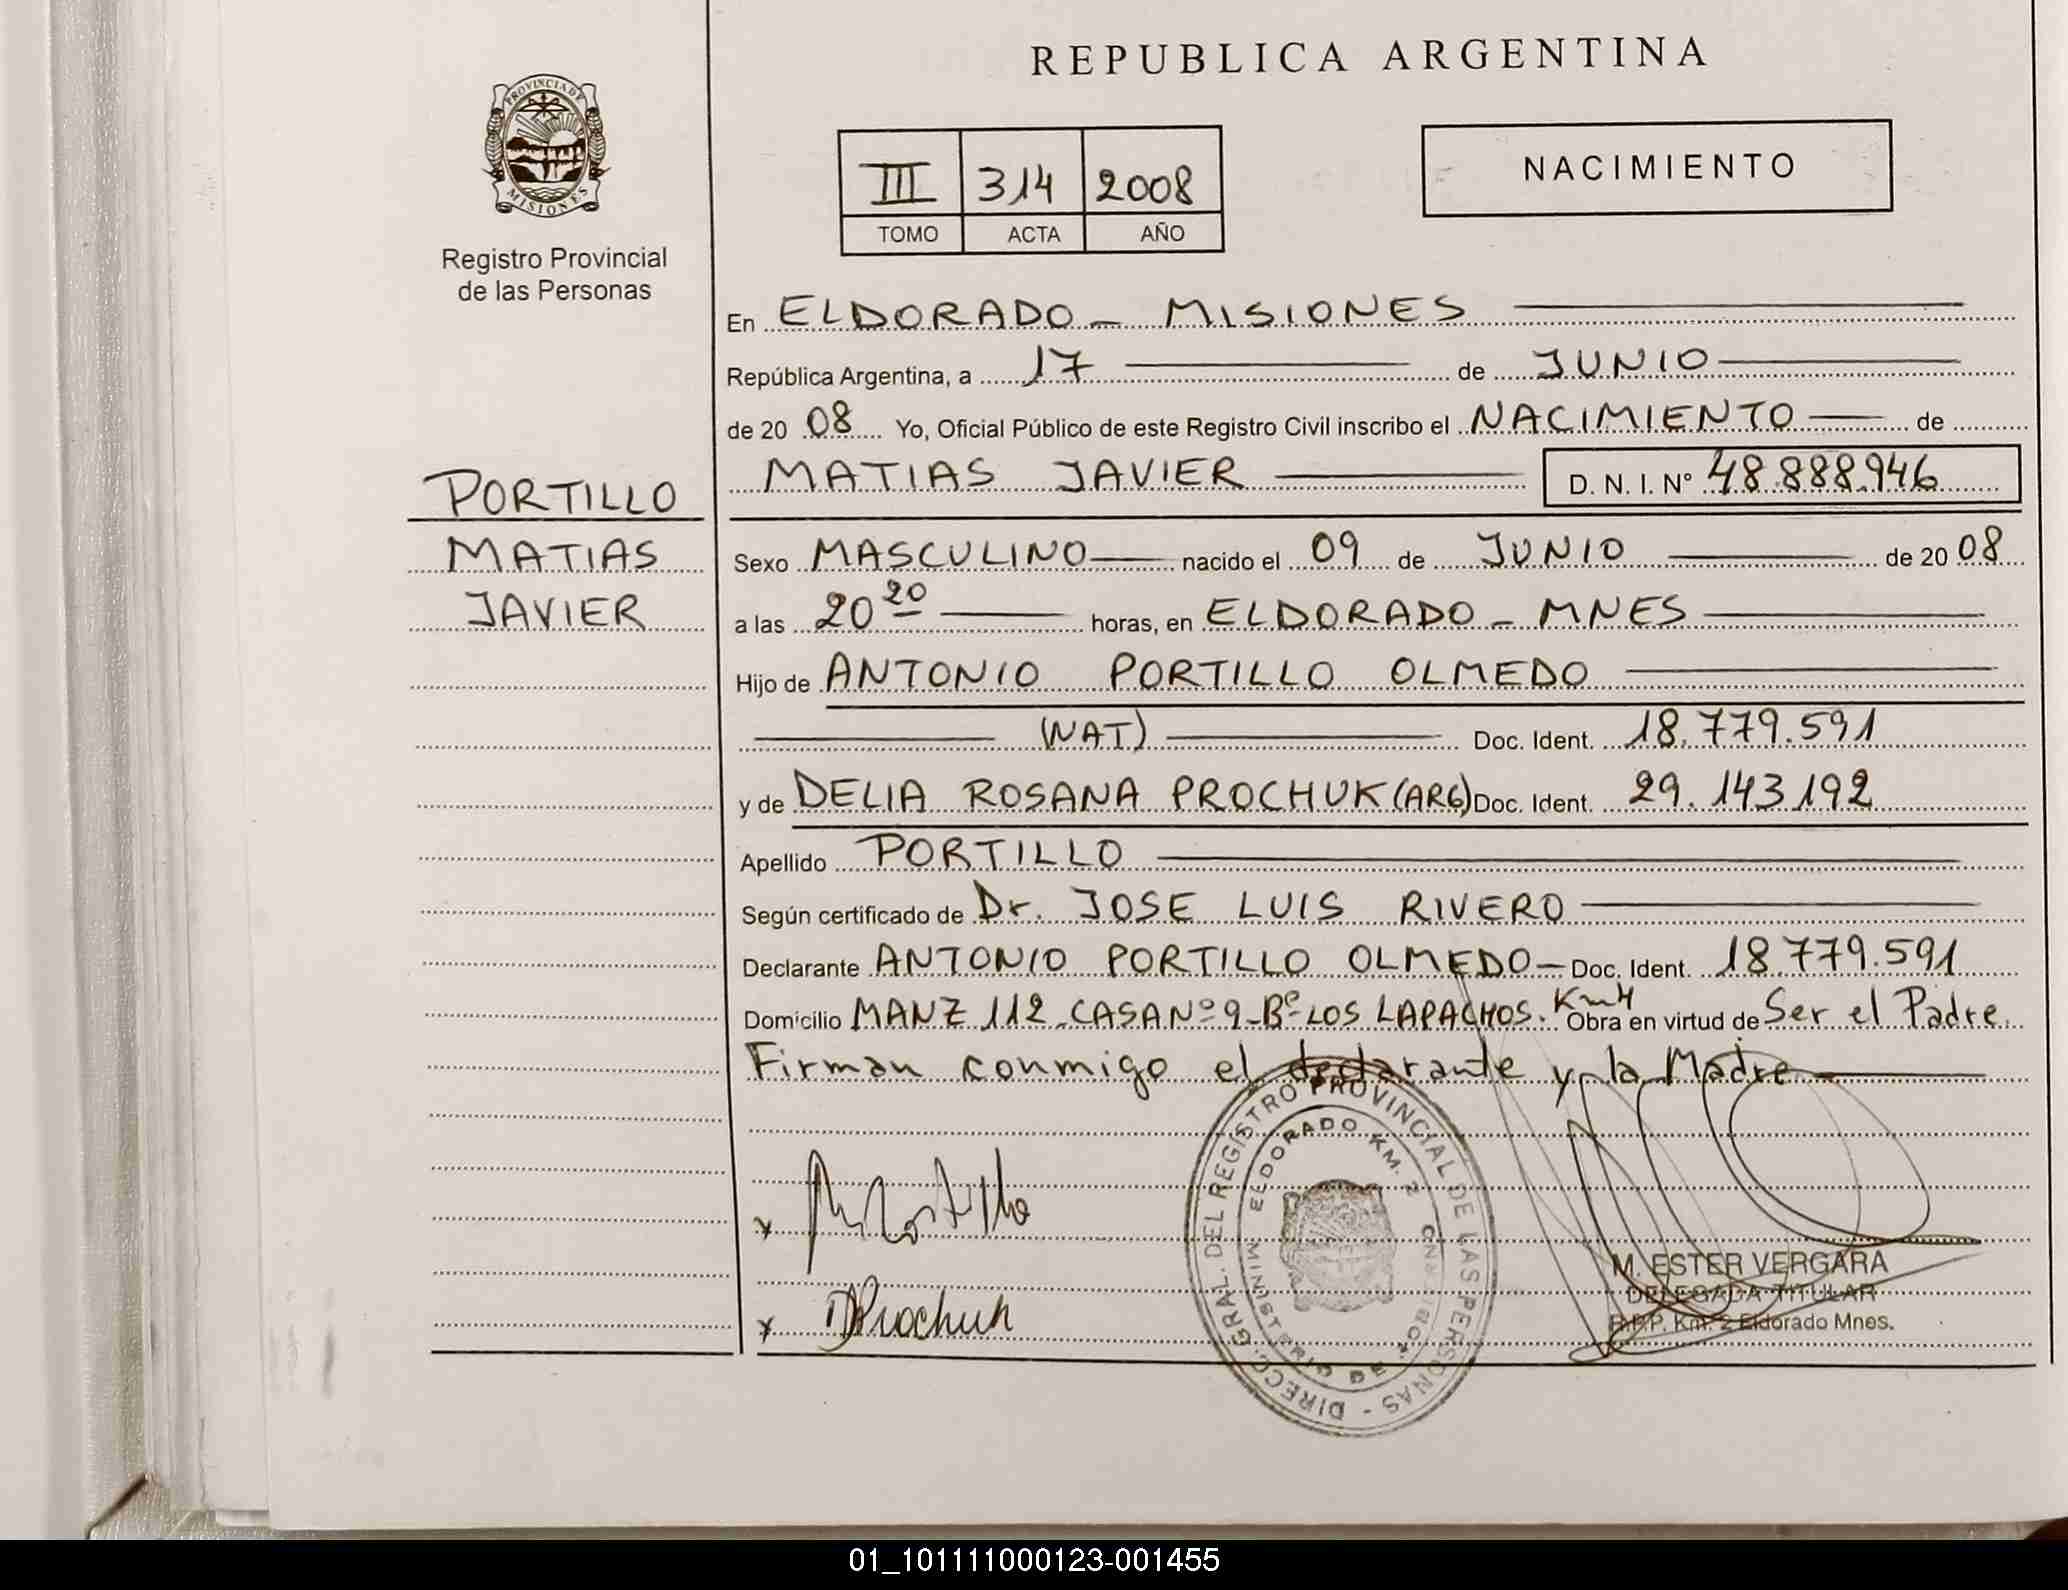 REPUBLICA ARGENTINA
PROVINCIA DE
MISIONES
Registro Provincial
de las Personas
III 314 2008
TOMO ACTA AÑO
NACIMIENTO
En ELDORADO - MISIONES
República Argentina, a 17 de JUNIO
de 20 08 Yo, Oficial Público de este Registro Civil inscribo el NACIMIENTO de
MATIAS JAVIER D. N. I. N° 48.888.946
PORTILLO
MATIAS
JAVIER
Sexo MASCULINO nacido el 09 de JUNIO de 20 08
a las 20 20 horas, en ELDORADO - MNES
Hijo de ANTONIO PORTILLO OLMEDO
(NAT) Doc. Ident. 18.779.591
y de DELIA ROSANA PROCHUK (ARG) Doc. Ident. 29.143.192
Apellido PORTILLO
Según certificado de Dr. JOSE LUIS RIVERO
Declarante ANTONIO PORTILLO OLMEDO - Doc. Ident. 18.779.591
Domicilio MANZ 112 - CASA Nº 9 - Bº LOS LAPACHOS. Km 4 Obra en virtud de Ser el Padre.
Firman conmigo el declarante y la Madre
DIRECC. GRAL. DEL REGISTRO PROVINCIAL DE LAS PERSONAS -
ELDORADO KM. 2
MINISTERIO DE
x Portillo
x D Prochuk
M. ESTER VERGARA
DELEGADA TITULAR
R.P.P. Km. 2 Eldorado Mnes.
01_101111000123-001455